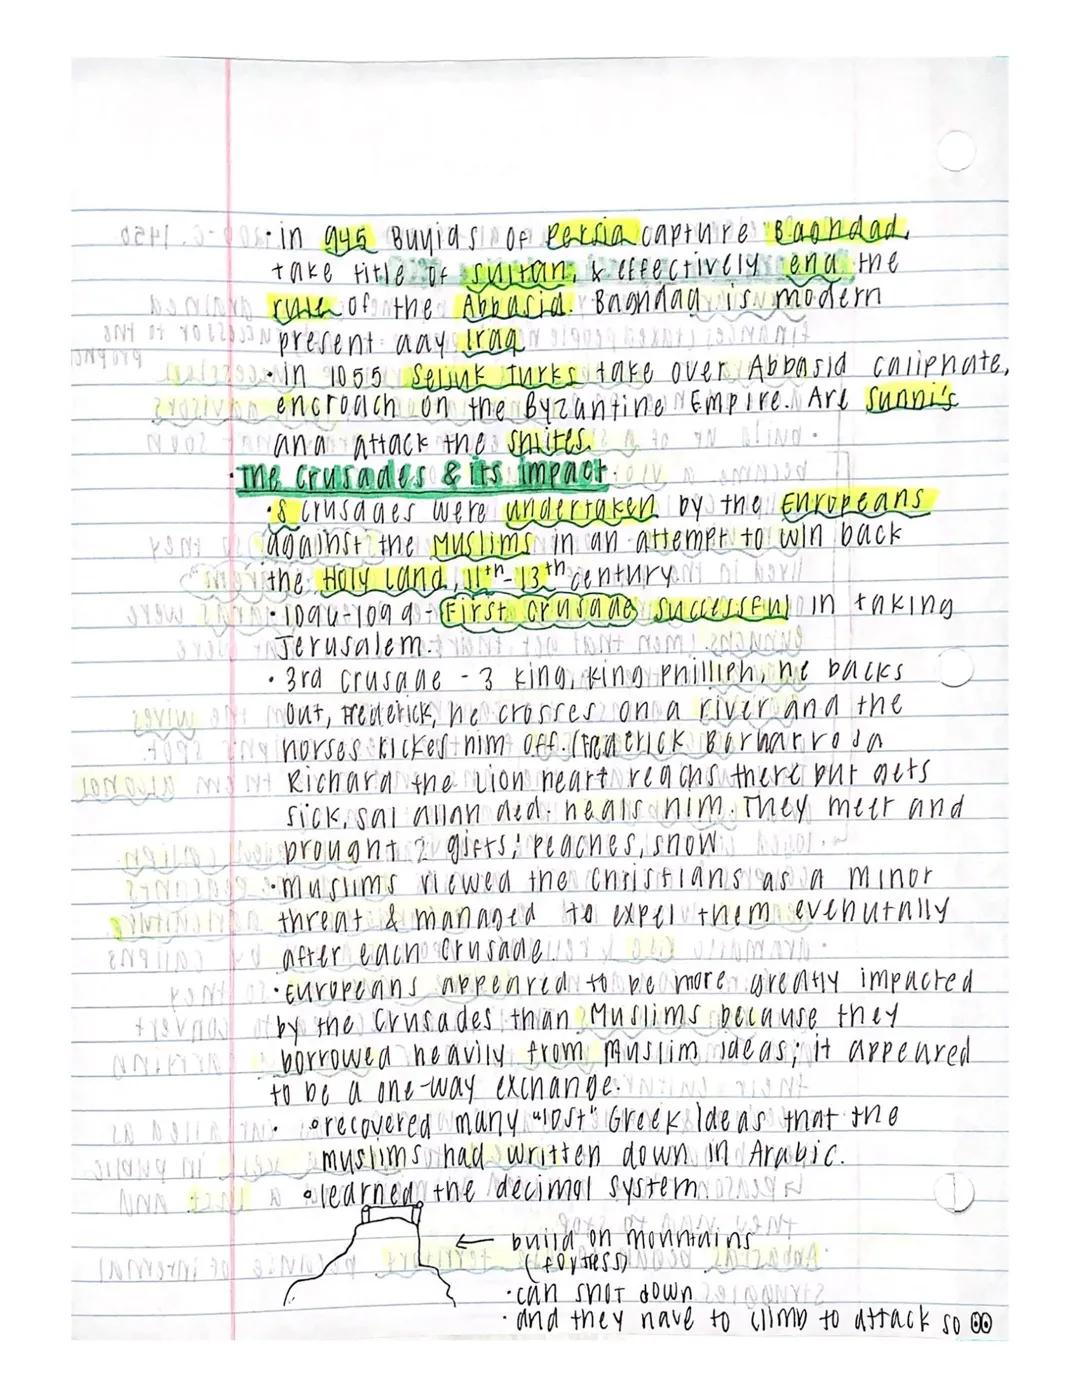 · in 945 Buyids of Persia capture Baghdad,
take title of sultan, & effectively end the
rule of the Abbasid. Baghdad is modern
present day Iraq
· in 1055 Seljuk Turks take over Abbasid caliphate,
encroach on the Byzantine Empire. Are Sunni's
and attack the Shiites.
· The Crusades & its impact.
· 8 crusades were undertaken by the Europeans
against the Muslims in an attempt to win back
the Holy Land, 11th-13th century
· 1094-1099- First crusade successful in taking
Jerusalem.
· 3rd crusade - 3 king, king Phillieh, he backs
out, Frederick, he crosses on a river and the
horses kickes him off. (Frederick Barbarrosa
Richard the Lion heart reachs there but gets
sick, sal allah ded. heals him. They meet and
brought 2 gifts; peaches, snow
· Muslims viewed the Christians as a minor
threat & managed to expel them evenutally
after each Crusade.
· Europeans appeared to be more greatly impacted
by the Crusades than Muslims because they
borrowed heavily from Muslim ideas; it appeared
to be a one-way exchange.
· recovered many "lost" Greek Ideas that the
muslims had written down in Arabic.
· learned the decimal system
← build on mountains
(fortress)
· can shot down
· and they have to climb to attack so